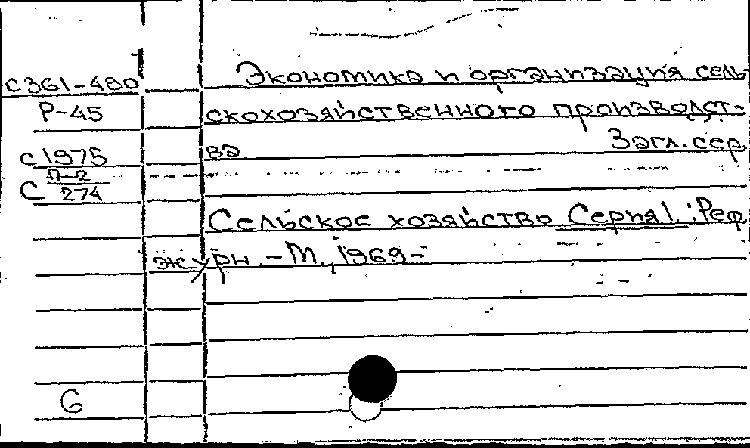 С361-480
Р-45
С1975
П-2
С 274
Экономика и организация сель-
скохозяйственного производст-
ва Загл. сер.
Сельское хозяйство Серия 1. : Реф.
журн. - М., 1969-
6